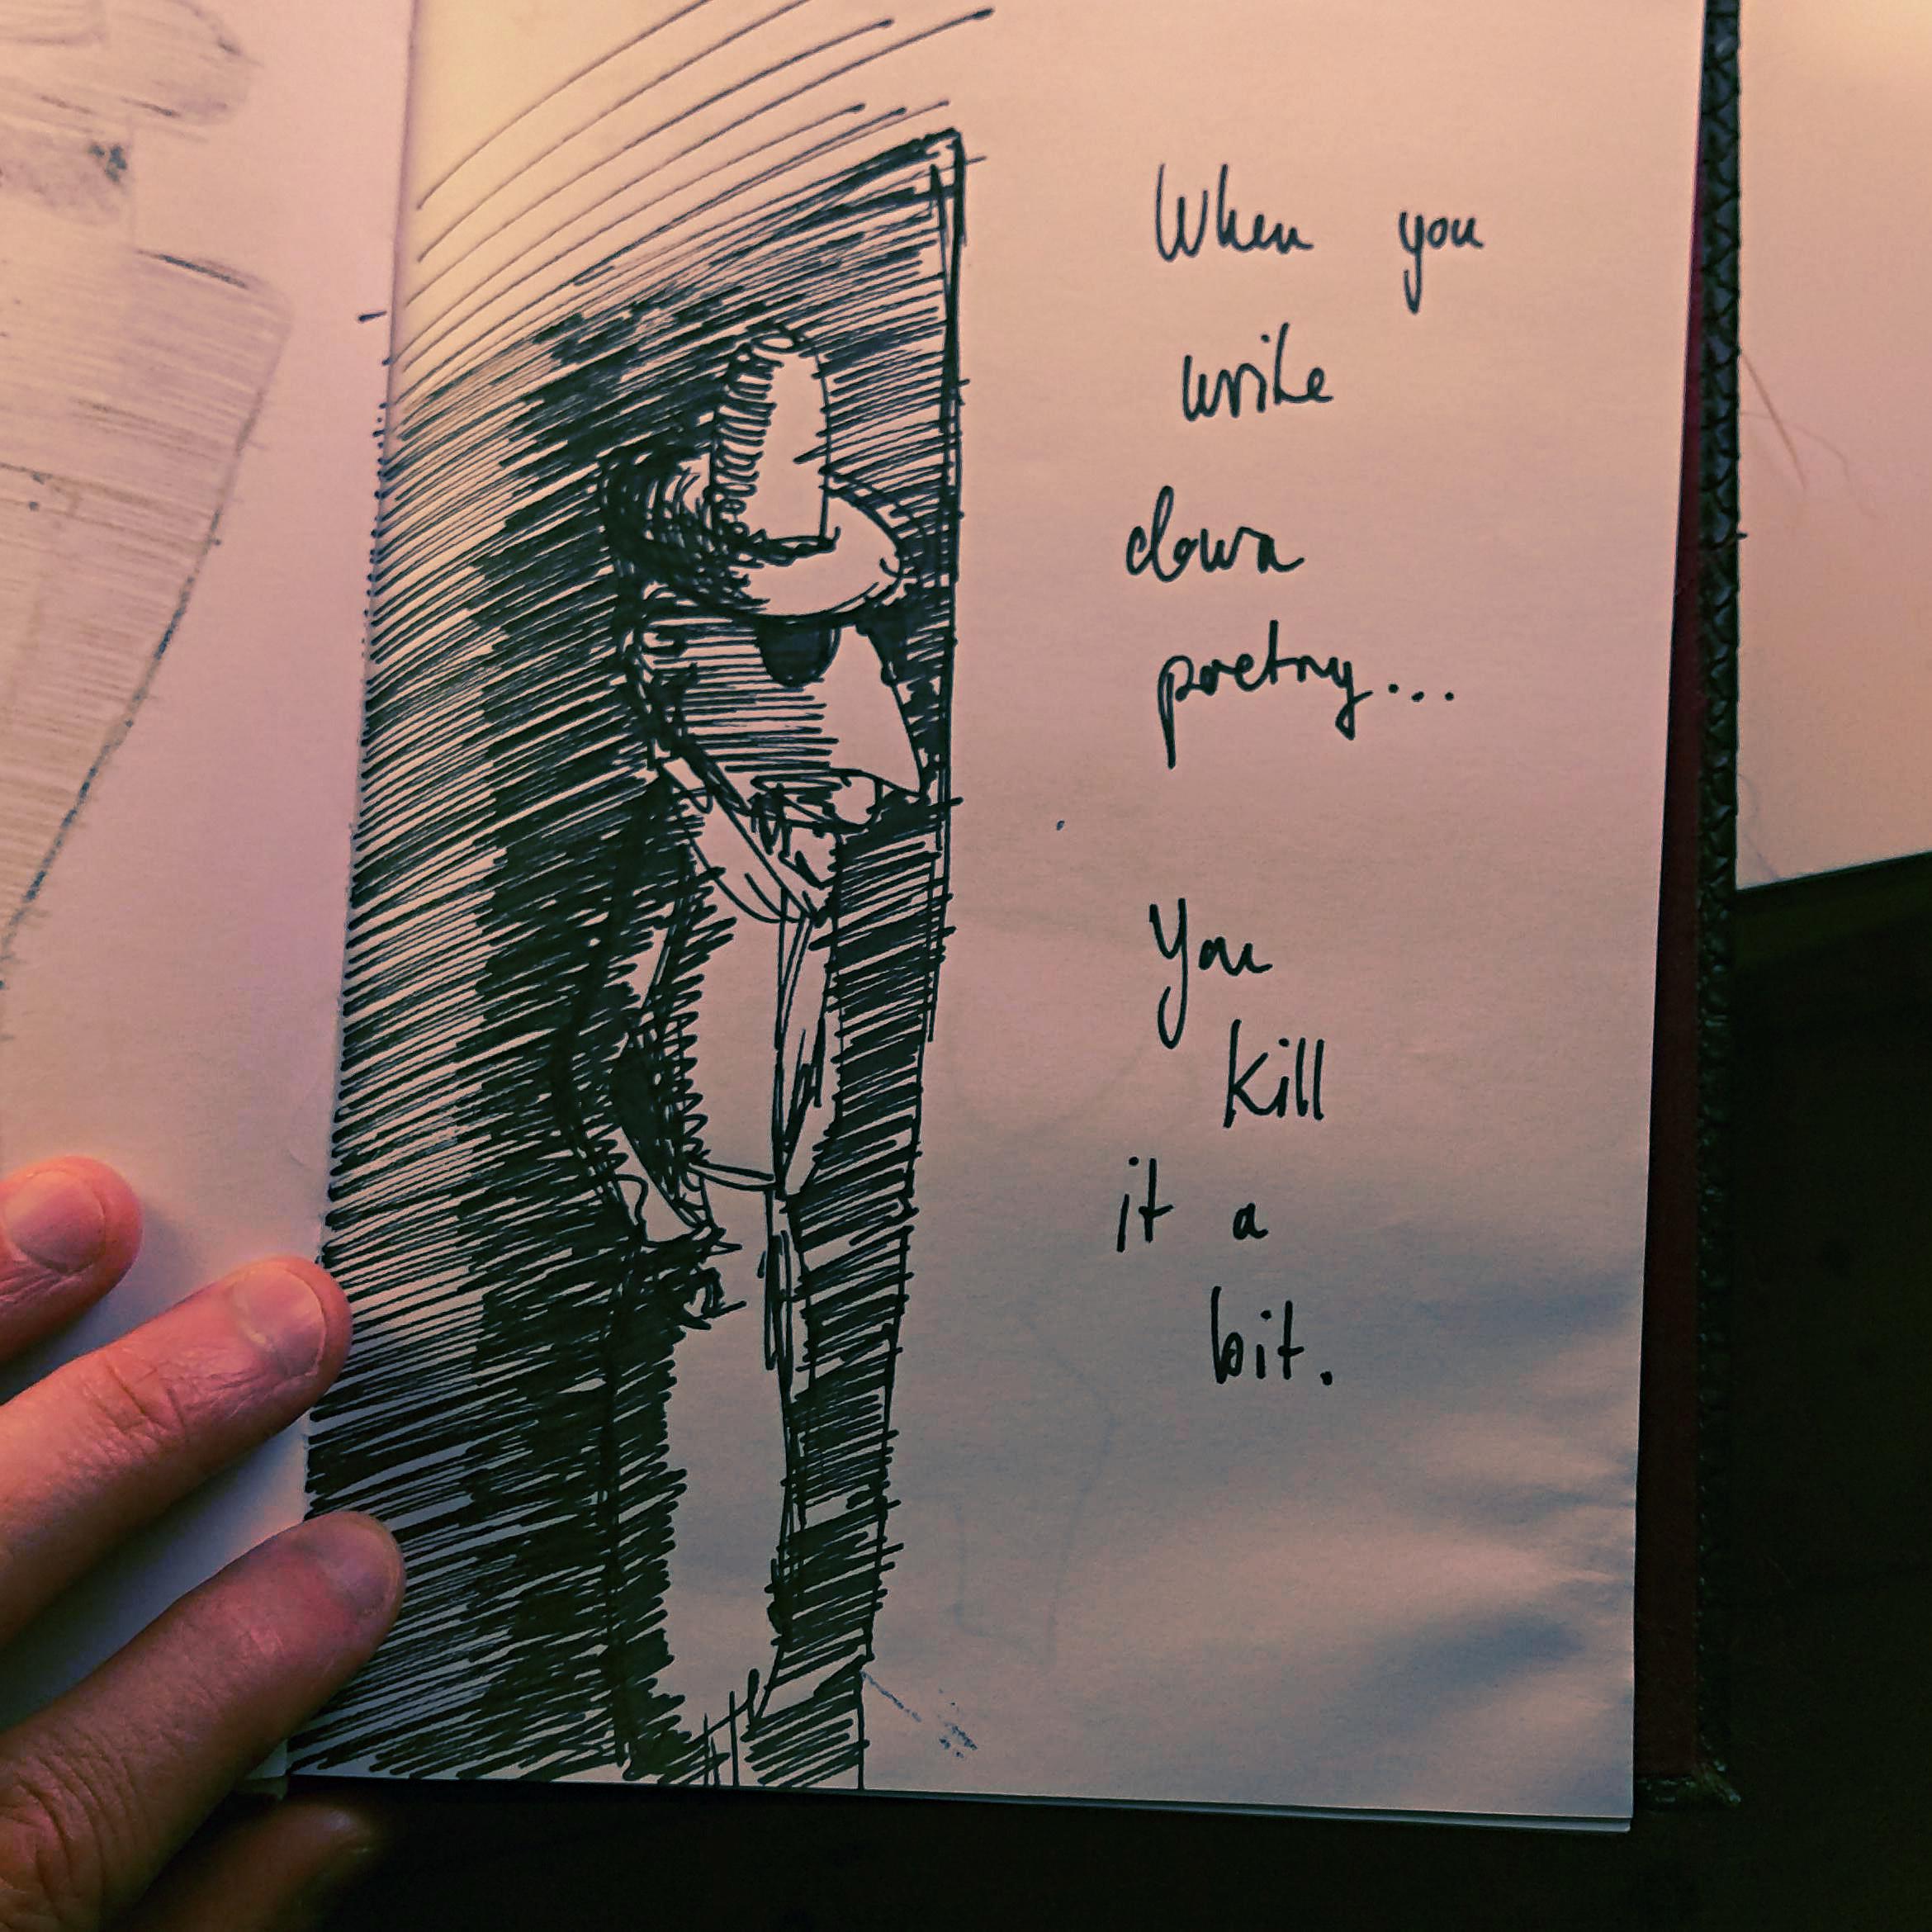 When you
write
down
poetry...
You
kill
it a
bit.